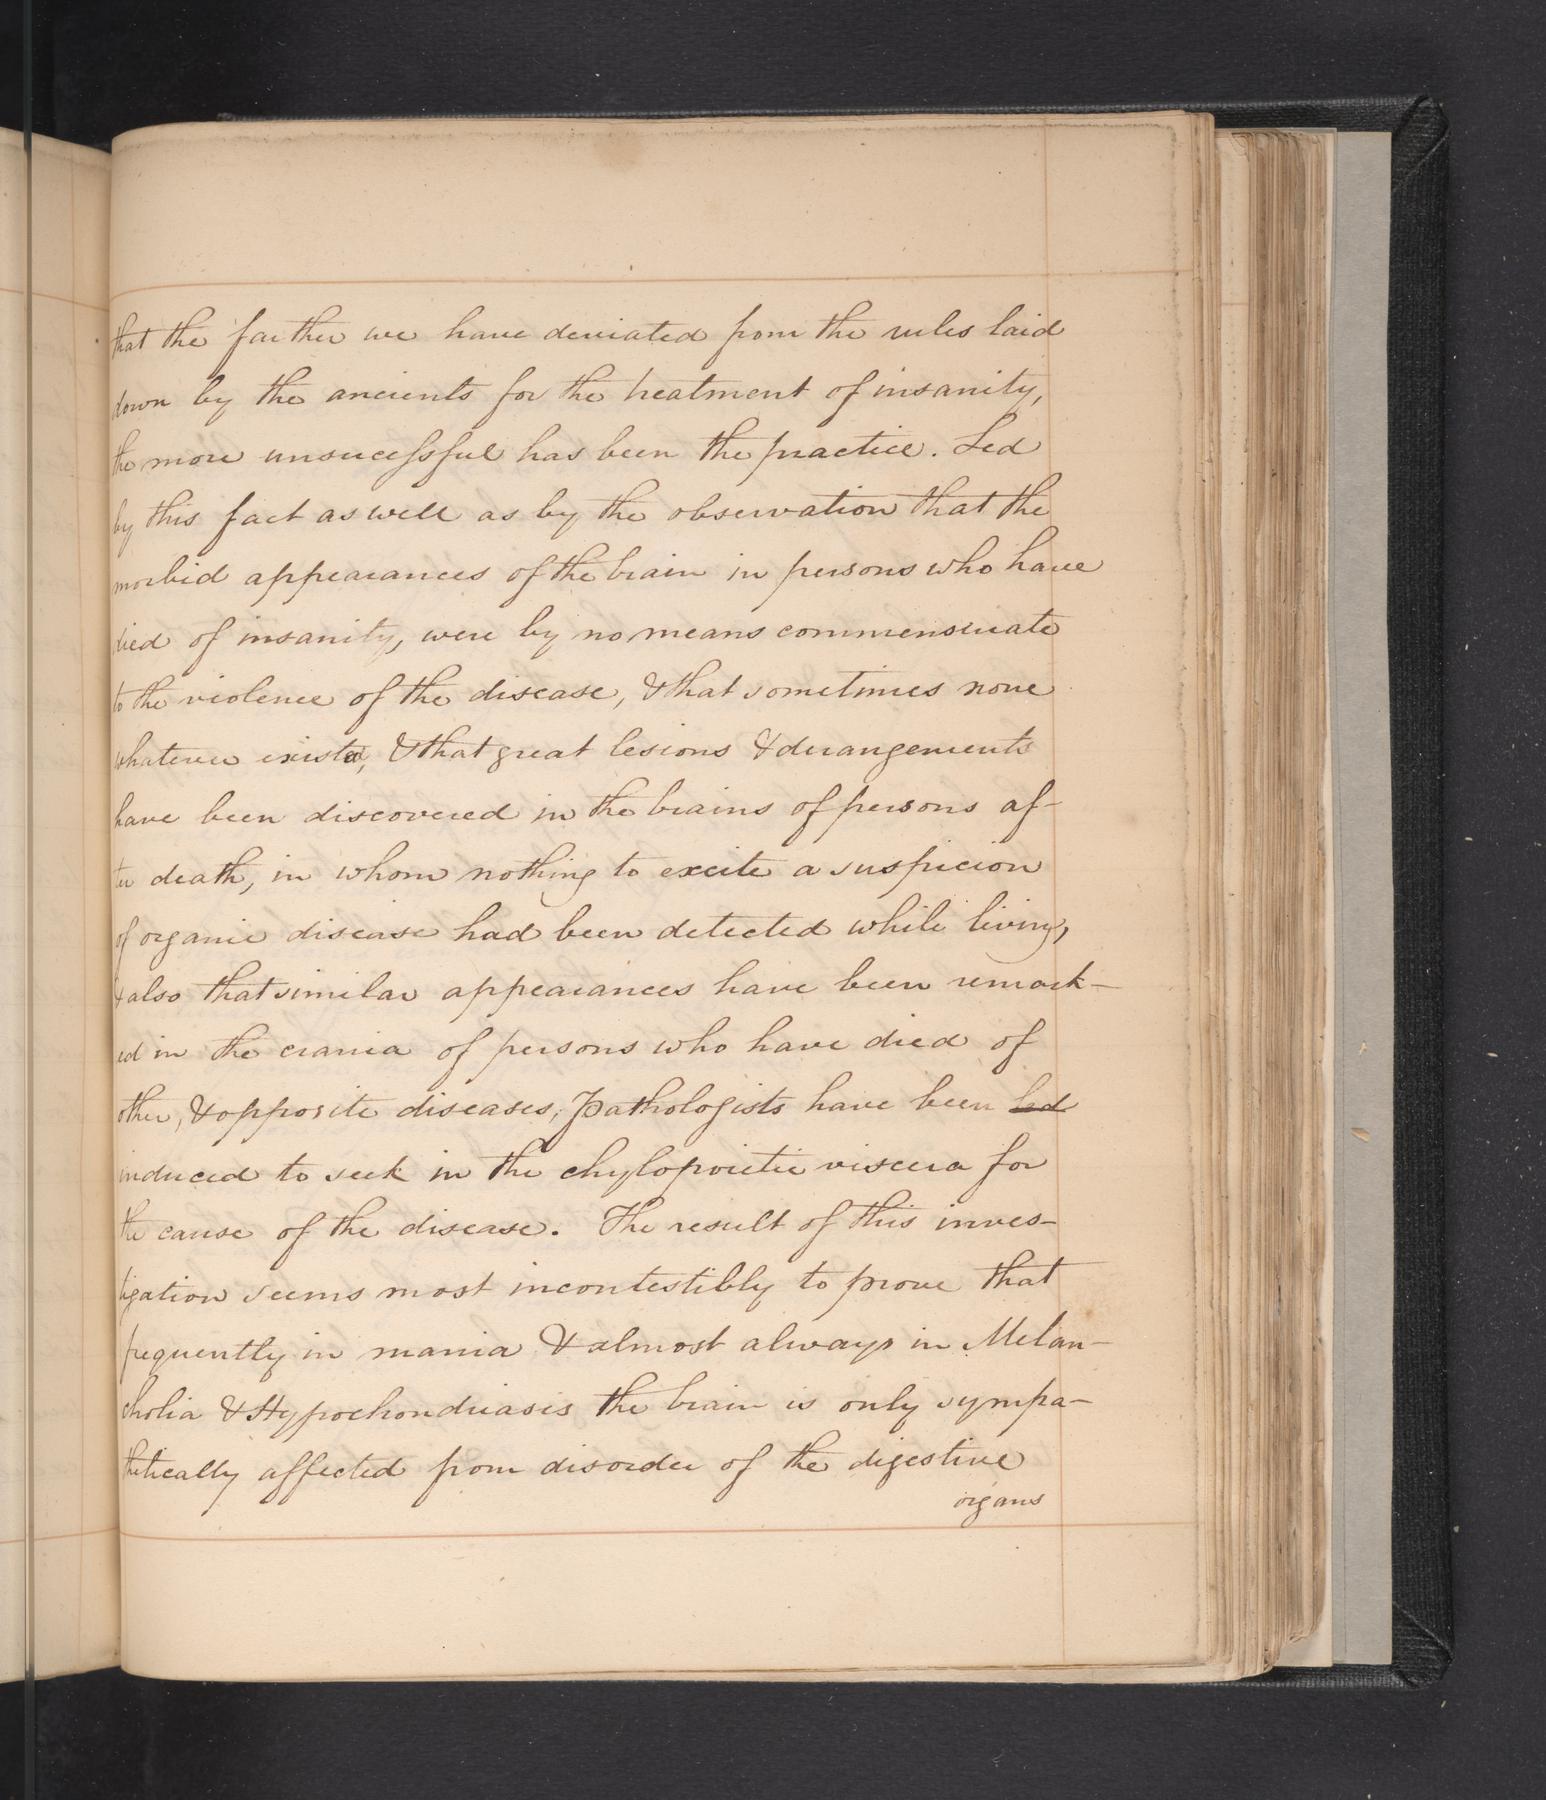 that the farther we have deviated from the rules laid
down by the ancients for the treatment of insanity,
the more unsucessful has been the practice. Led
by this fact as well as by the observation that the
morbid appearances of the brain in persons who have
died of insanity, were by no means commensurate
to the violence of the disease, & that sometimes none
whatever existed, & that great lesions & derangements
have been discovered in the brains of persons af-
ter death, in whom nothing to excite a suspicion
of organic disease had been detected while living,
& also that similar appearances have been remark-
ed in the crania of persons who have died of
other, & opposite diseases, Pathologists have been led
induced to seek in the chylopoietic viscera for
the cause of the disease. The result of this inves-
tigation seems most incontestibly to prove that
frequently in mania & almost always in Melan-
cholia & Hypochondriasis the brain is only sympa-
thetically affected from disorder of the digestive
organs